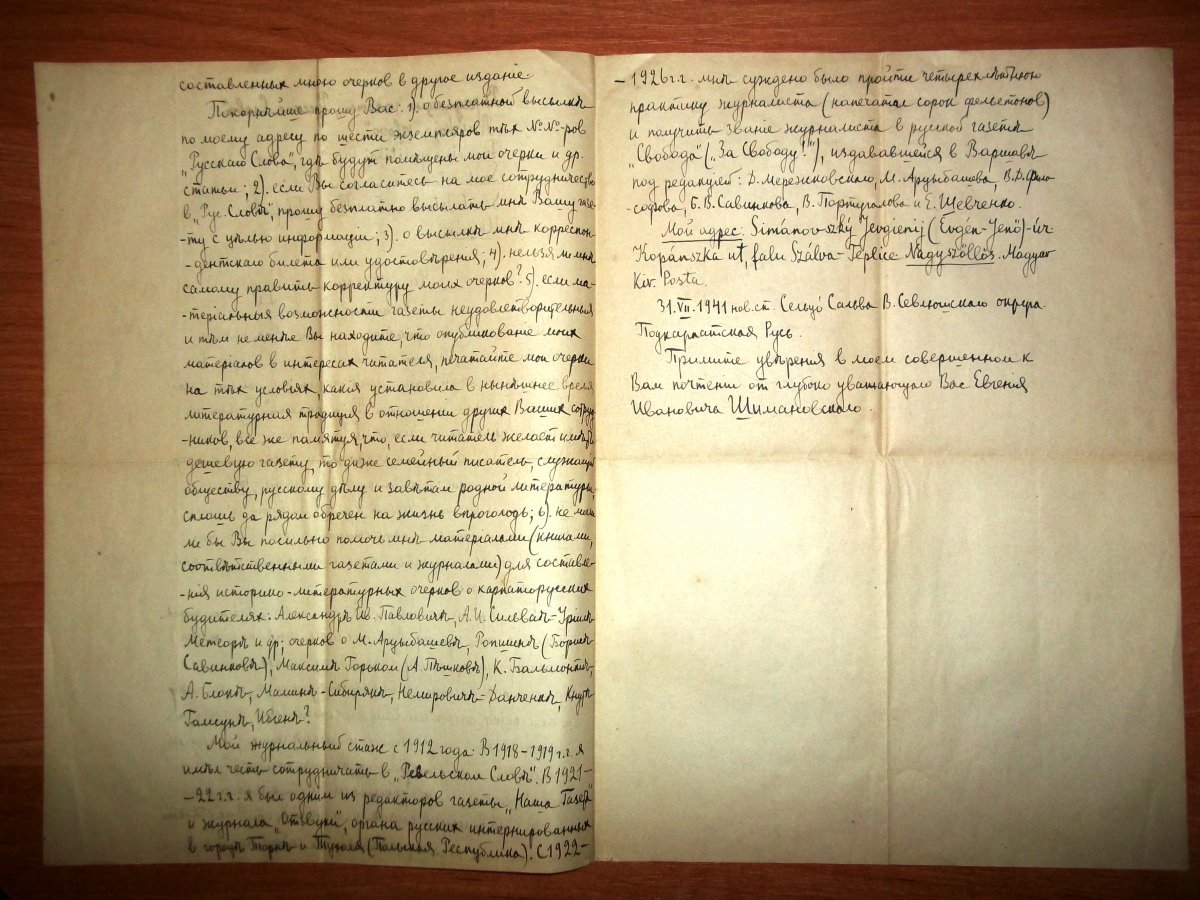 составленных мною очерков в другое изданіе.
Покорнѣйше прошу Вас: 1). о безплатной высылкѣ
по моему адресу по шести экземпляров тѣх №№-ров
„Русскаго Слова", гдѣ будут помѣщены мои очерки и др.
статьи; 2). если Вы согласитесь на мое сотрудничество
в „Рус. Словѣ", прошу безплатно высылать мнѣ Вашу газе-
-ту с цѣлью информаціи; 3). о высылкѣ мнѣ корреспон-
-дентскаго билета или удостовѣренія; 4). нельзя ли мнѣ
самому править корректуру моих очерков? 5). если ма-
-теріальныя возможности газеты неудовлетворительныя
и тѣм не менѣе Вы находите, что опубликованіе моих
матеріалов в интересах читателя, печатайте мои очерки
на тѣх условіях, какія установила в нынѣшнее время
литературная традиція в отношеніи других Ваших сотруд-
-ников, все же памятуя, что, если читатель желает имѣть
дешевую газету, то даже семейный писатель, служащій
обществу, русскому дѣлу и завѣтам родной литературы,
сплошь да рядом обречен на жизнь впроголодь; 6). не могли
ли бы Вы посильно помочь мнѣ матеріалами (книгами,
соотвѣтственными газетами и журналами) для составле-
-нія историко-литературных очерков о карпаторусских
будителях: Александрѣ Ив. Павловичѣ, А. И. Сильвай-Уріилѣ
Метеорѣ и др; очерков о М. Арцыбашевѣ, Ропшинѣ (Борисѣ
Савинковѣ), Максимѣ Горьком (А. Пѣшковѣ), К. Бальмонтѣ,
А. Блокѣ, Маминѣ-Сибирякѣ, Немировичѣ-Данченкѣ, Кнутѣ
Гамсунѣ, Ибсенѣ?
Мой журнальный стаж с 1912 года. В 1918-1919 г.г. я
имѣл честь сотрудничать в „Ревельском Словѣ". В 1921-
-22 г.г. я был одним из редакторов газеты „Наша Газета"
и журнала „Отзвуки", органа русских интернированных
в городѣ Торнѣ и Тухоля (Польская Республика). С 1922-
-1926 г.г. мнѣ суждено было пройти четырехлѣтнюю
практику журналиста (напечатал сорок фельетонов)
и получить званіе журналиста в русской газетѣ
„Свобода" („За Свободу!"), издававшейся в Варшавѣ
под редакціей: Д. Мережковскаго, М. Арцыбашева, В. Д. Фило-
-софова, Б. В. Савинкова, В. Португалова и Е. Шевченко.
Мой адрес: Simánov-szký Jevgienij (Eugén-Jenö)-úr.
Kopánszka ut, falu Szálva-Teplice Nagyszőllős. Magyar
Kir. Posta.
31.VII.1941 нов. ст. Сельцо Сальва В. Севлюшскаго округа.
Подкарпатская Русь.
Примите увѣренія в моем совершенном к
Вам почтеніи от глубоко уважающаго Вас Евгенія
Ивановича Шимановскаго.